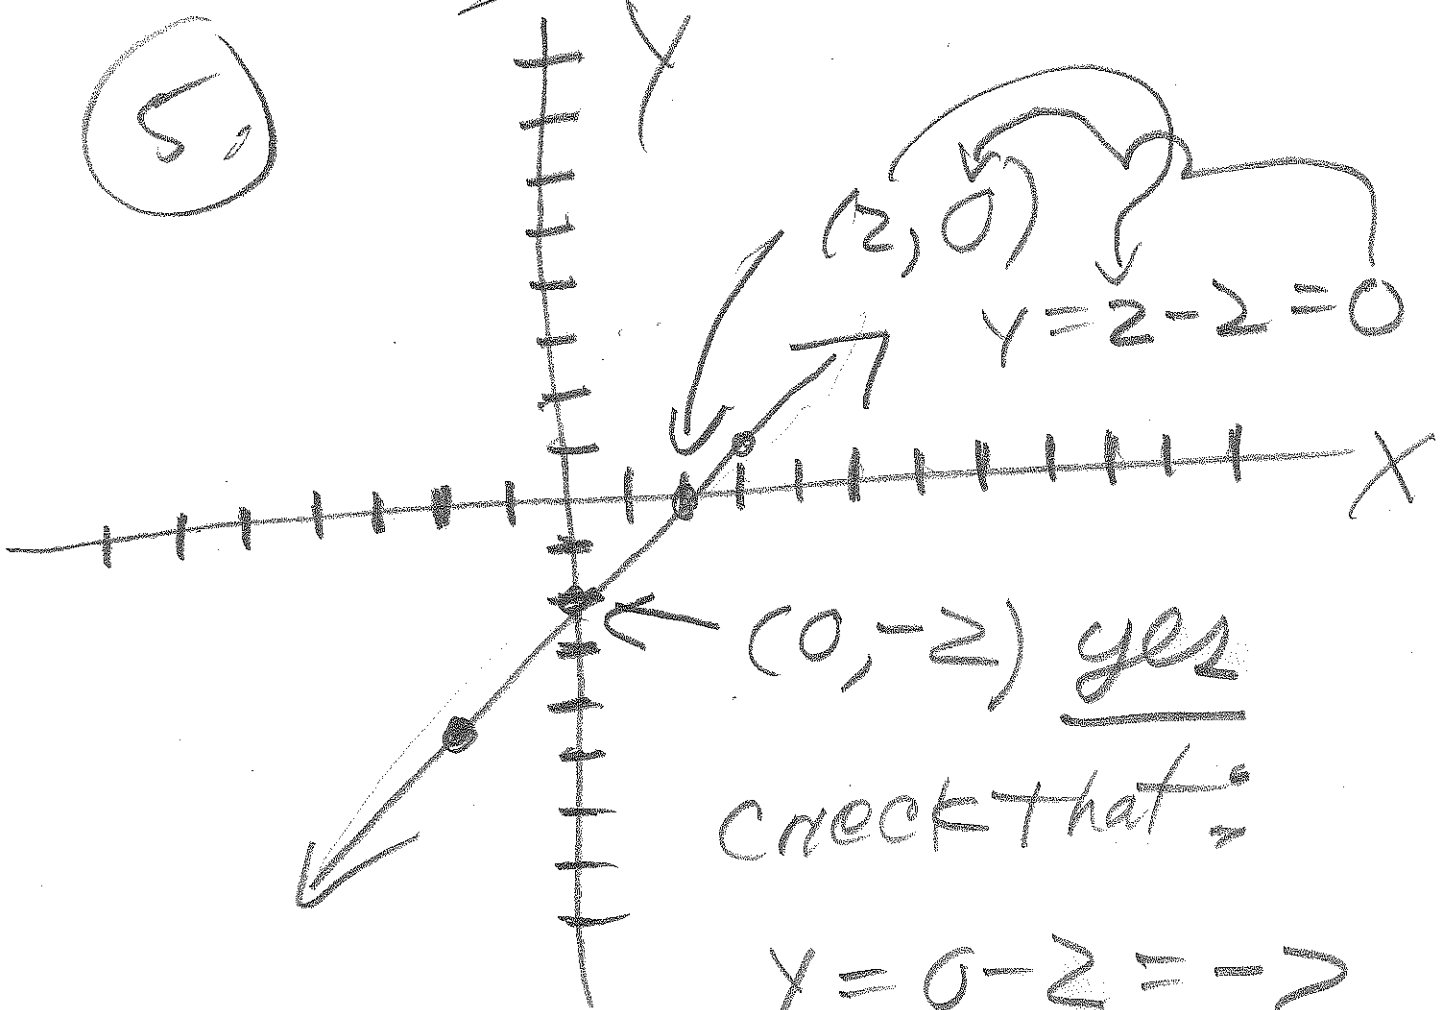 5.
Y
(2,0)
y=2-2=0
X
(0,-2) yes
check that:
y=0-2=-2